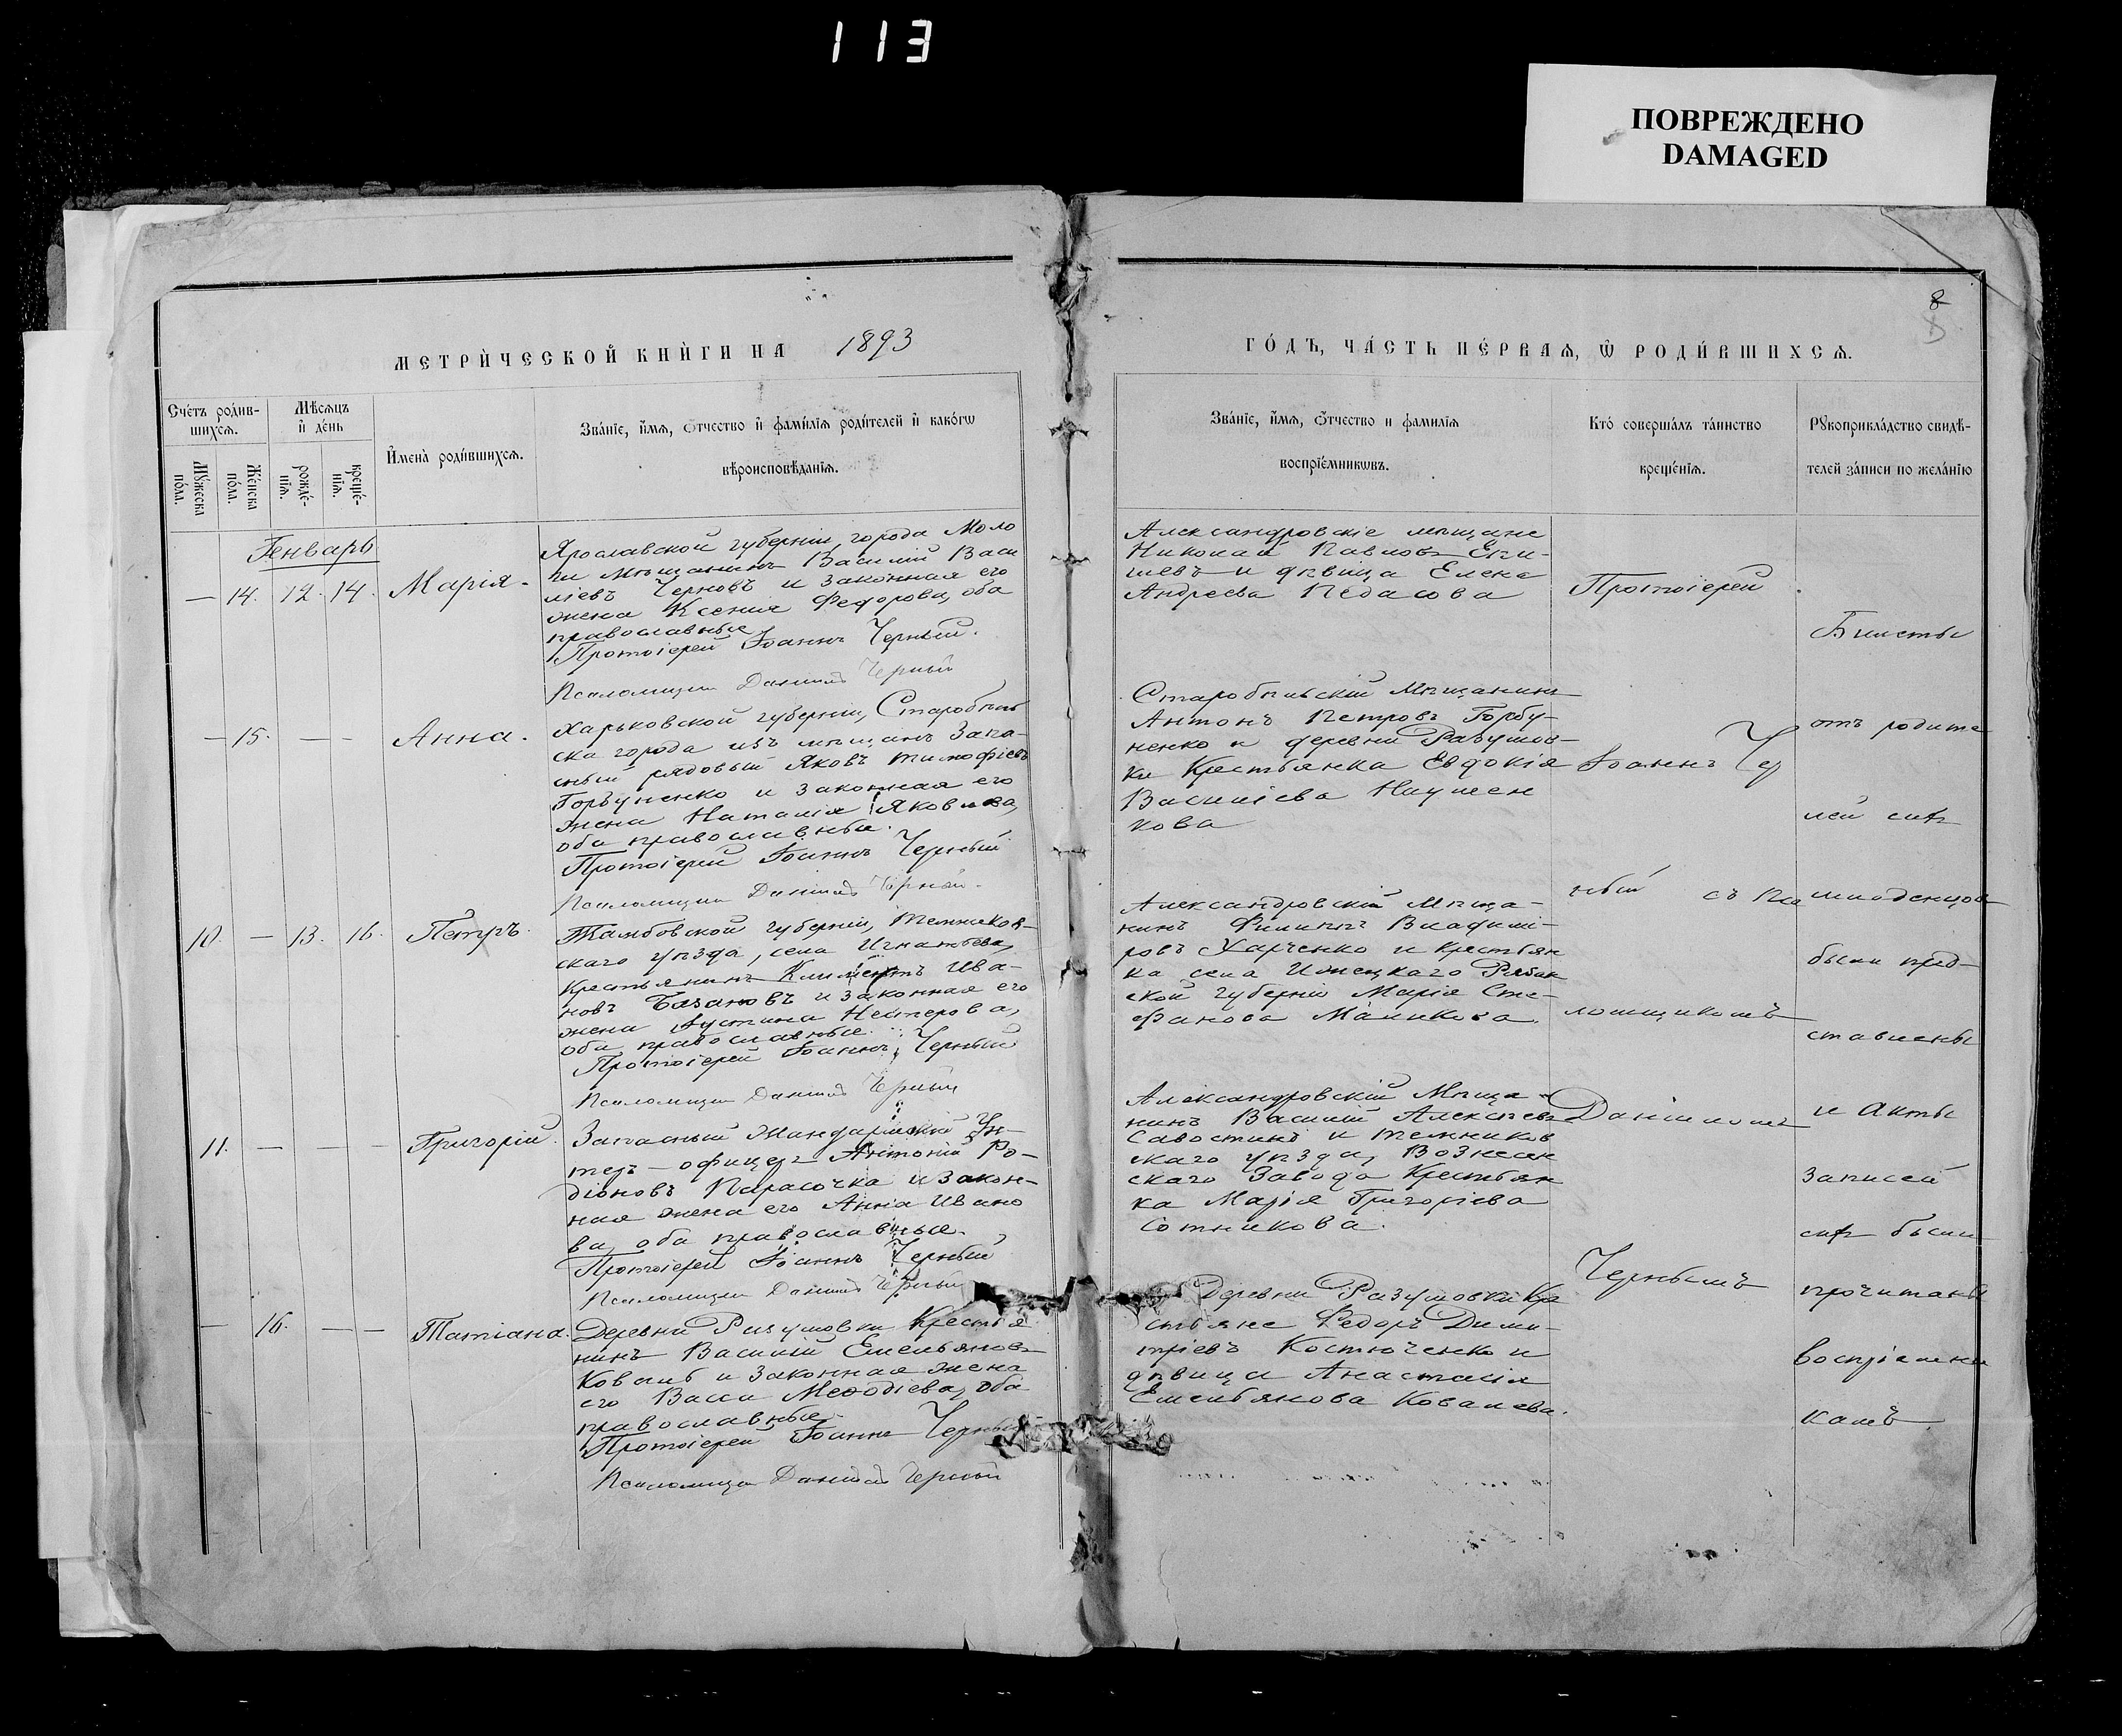 113
ПОВРЕЖДЕНО
DAMAGED
8
МЕТРИ́ЧЕСКОЙ КНИ́ГИ НА 1893
ГО́ДЪ, ЧА́СТЬ ПЕ́РВАѦ, Ѡ РОДИ́ВШИХСѦ.
Сче́тъ роди́в-
шихсѧ.
Мꙋ́жеска по́ла.
Же́нска по́ла.
Мѣ́сѧцъ
и҆ де́нь
рожде́-
нїѧ.
креще́-
нїѧ.
И҆мена̀ роди́вшихсѧ.
Зва́нїе, и҆́мѧ, ѻ҆́тчество и҆ фами́лїѧ роди́телей и҆ како́гѡ
вѣроисповѣ́данїѧ.
Зва́нїе, и҆́мѧ, ѻ҆́тчество и фамилїѧ
воспрїе́мникѡвъ.
Кто́ соверша́лъ та́инство
креще́нїѧ.
Рꙋкоприкла́дство свидѣ́-
телей за́писи по жела́нїю
Генварь
— 14. 12. 14. Марія.
Ярославской губерніи, города Моло
ги Мѣщанинъ Василій Васи
ліевъ Черновъ и законная его
жена Ксенія Федорова, оба
православные
Протоіерей Іоаннъ Черный.
Псаломщикъ Даніилъ Черный
Александровскіе мѣщане
Николай Павловъ Епи-
шевъ и дѣвица Елена
Андреева Педасова
— 15. — — Анна.
Харьковской губерніи, Старобѣль
ска города изъ мѣщанъ Запа-
сный рядовый Яковъ Тимофіевъ
Горбуненко и законная его
жена Наталія Яковлева,
оба православные.
Протоіерей Іоаннъ Черный
Псаломщикъ Даніилъ Черный.
Старобѣльскій Мѣщанинъ
Антонъ Петровъ Горбу-
ненко и деревни Разумов-
ки Крестьянка Евдокія
Василіева Наумен
кова
10. — 13. 16. Петръ.
Тамбовской губерніи, Темников-
скаго уѣзда, села Игнатьева,
Крестьянинъ Климентъ Ива-
новъ Базановъ и законная его
жена Іустина Несторова,
оба православные.
Протоіерей Іоаннъ Черный
Псаломщикъ Даніилъ Черный
Александровскій Мѣща-
нинъ Филиппъ Владимі-
ровъ Харченко и крестьян
ка села Ижецкаго Рязан
ской губерніи Марія Сте-
фанова Маликова.
11. — — — Григорій.
Запасный Жандармскій Ун-
теръ-офицеръ Антоній Ро-
діоновъ Парасочка и закон-
ная жена его Анна Ивано
ва, оба православные.
Протоіерей Іоаннъ Черный
Псаломщикъ Даніилъ Черный
Александровскій Мѣща-
нинъ Василій Алексѣевъ
Савостинъ и Темников
скаго уѣзда, Вознесен
скаго Завода Крестьян
ка Марія Григоріева
Сотникова.
— 16. — — Татіана.
Деревни Разумовки Крестья
нинъ Василій Емельяновъ
Коваль и законная жена
его Васса Меѳодіева, оба
православные
Протоіерей Іоаннъ Черный
Псаломщикъ Даніилъ Черный
Деревни Разумовки Кре
стьяне Федоръ Дими-
тріевъ Костюченко и
дѣвица Анастасія
Емельянова Ковалева.
Протоіерей
Іоаннъ Чер
ный съ Пса
ломщикомъ
Даніиломъ
Чернымъ
Билеты
отъ родите
лей сихъ
младенцовъ
были пред-
ставлены
и Акты
записей
сихъ были
прочитаны
воспріемни
камъ